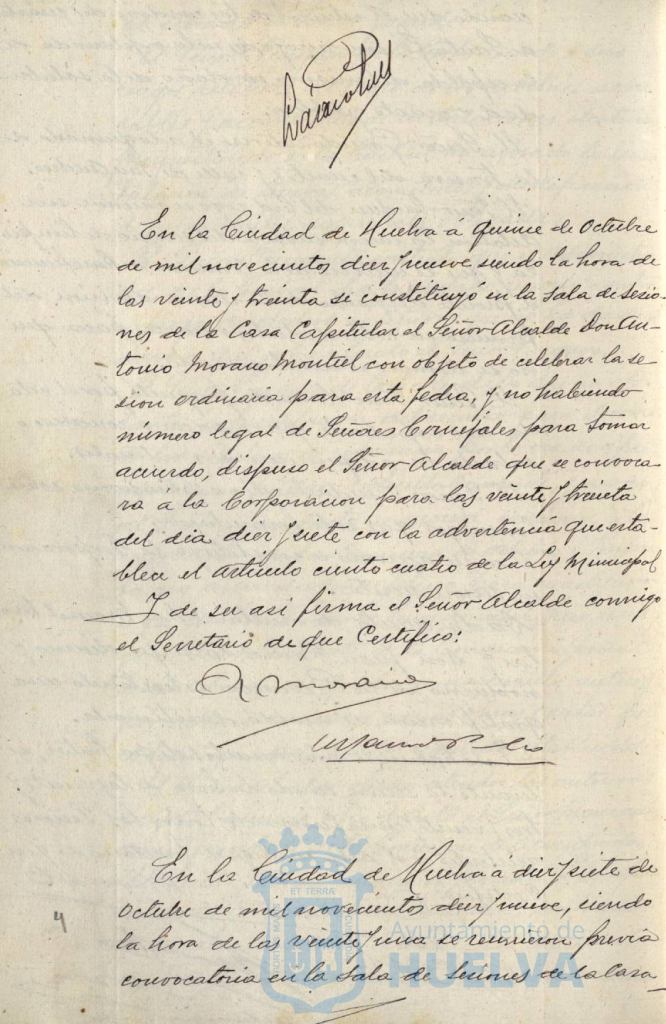 En la Ciudad de Huelva á quince de Octubre
de mil novecientos diez y nueve siendo la hora de
las veinte y treinta se constituyó en la sala de sesio-
nes de la Casa Capitular el Señor Alcalde Don An-
tonio Morano Montiel con objeto de celebrar la se-
sion ordinaria para esta fecha, y no habiendo
número legal de Señores Concejales para tomar
acuerdo, dispuso el Señor Alcalde que se convoca-
ra á la Corporacion para las veinte y treinta
del dia diez y siete con la advertencia que esta-
blece el articulo ciento cuatro de la Ley Municipal
Y de ser asi firma el Señor Alcalde conmigo
el Secretario de que Certifico:
A Morano
En la Ciudad de Huelva á diez y siete de
Octubre de mil novecientos diez y nueve, siendo
la hora de las veinte y una se reunieron previa
convocatoria en la sala de sesiones de la Casa
4
Ayuntamiento de
HUELVA